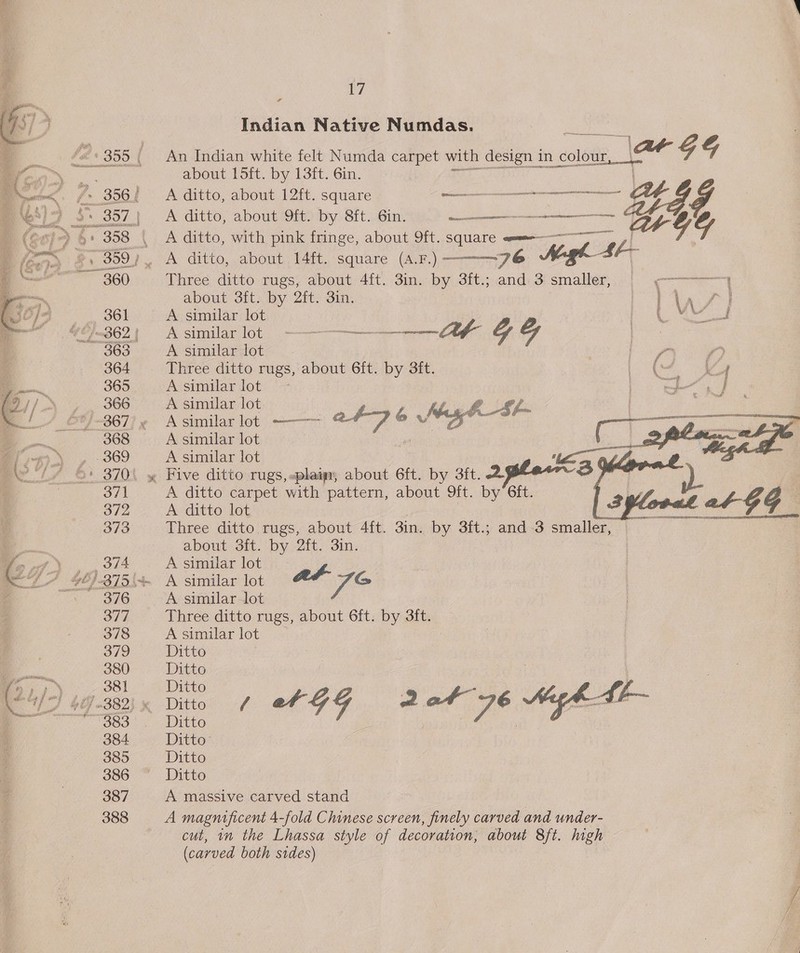 17
Indian Native Numdas.
355 An Indian white felt Numda carpet with design in colour, at GG
about 15ft. by 13ft. 6in.
356 A ditto, about 12ft. square at GG
357 A ditto, about 9ft. by 8ft. 6in. at GG
358 A ditto, with pink fringe, about 9ft. square at GG
359 A ditto, about 14ft. square (A.F.) 76 High St
360 Three ditto rugs, about 4ft. 3in. by 3ft.; and 3 smaller,
about 3ft. by 2ft. 3in.
361 A similar lot
362 A similar lot at GG
363 A similar lot
364 Three ditto rugs, about 6ft. by 3ft.
365 A similar lot
366 A similar lot
367 A similar lot at 76 High St
368 A similar lot
369 A similar lot
370 Five ditto rugs, plain, about 6ft. by 3ft. 2 plain 3 floral
371 A ditto carpet with pattern, about 9ft. by 6ft.
372 A ditto lot
373 Three ditto rugs, about 4ft. 3in. by 3ft.; and 3 smaller,
about 3ft. by 2ft. 3in.
2 plain at 76
High St
3 floral at GG
374 A similar lot
375 A similar lot at 76
376 A similar lot
377 Three ditto rugs, about 6ft. by 3ft.
378 A similar lot
379 Ditto
380 Ditto
381 Ditto
382 Ditto 1 at GG 2 at 76 High St
383 Ditto
384 Ditto
385 Ditto
386 Ditto
387 A massive carved stand
388 A magnificent 4-fold Chinese screen, finely carved and under-
cut, in the Lhassa style of decoration, about 8ft. high
(carved both sides)